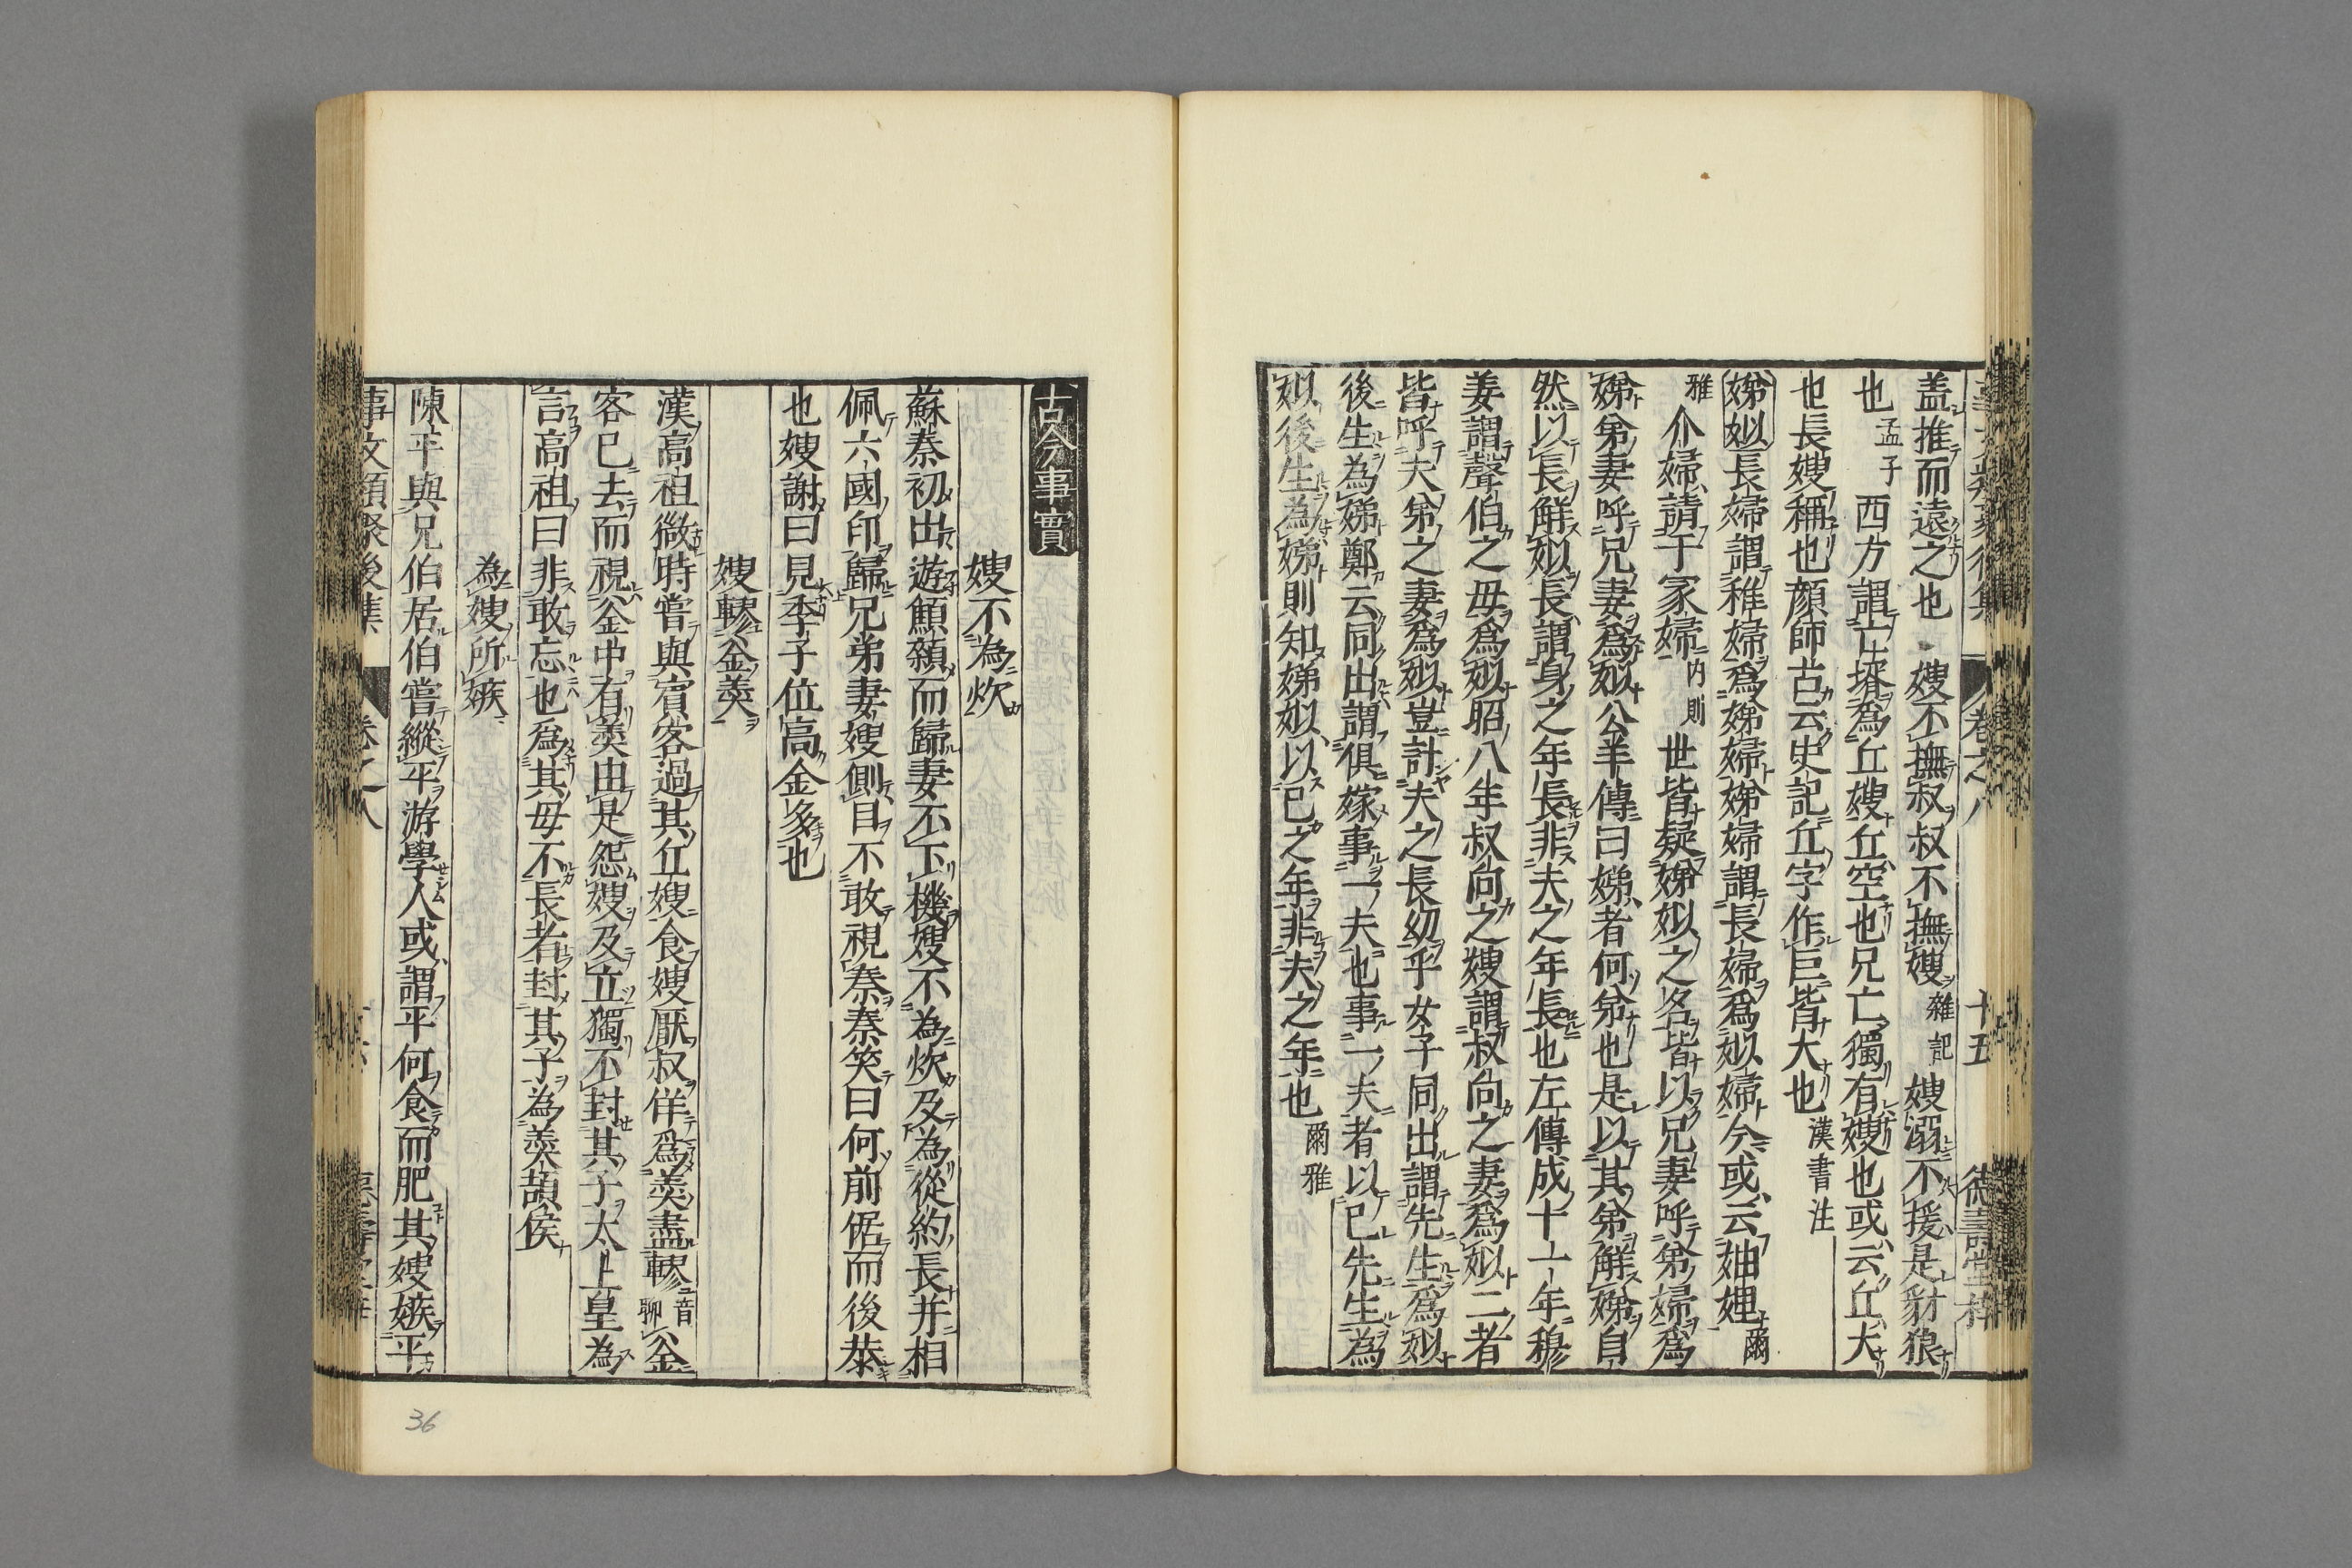 盖推而遠之也　嫂不撫叔叔不撫嫂雜記嫂溺不援是豺狼
也孟子西方謂亡壻爲丘嫂丘空也兄亡獨有嫂也或云丘大
也長嫂稱也顔師古云史記丘字作巨皆大也漢書注
娣姒長婦謂稚婦爲娣婦娣婦謂長婦爲姒婦今或云妯娌爾
雅介婦請于冢婦内則世皆疑娣姒之名皆以兄妻呼弟婦爲
娣弟妻呼兄妻爲姒公羊傳曰娣者何弟也是以其弟解娣自
然以長解姒長謂身之年長非夫之年長也左傳成十一年穆
姜謂聲伯之母爲姒昭八年叔向之嫂謂叔向之妻爲姒二者
皆呼夫弟之妻爲姒豈計夫之長幼乎女子同出謂先生爲姒
後生為娣鄭云同出謂俱嫁事一夫也事一夫者以已先生為
姒後生為娣則知娣姒以已之年非夫之年也爾雅
卷之八
十五
德壽堂梓
古今事實
嫂不為炊
蘇秦初出遊顦顇而歸妻不下機嫂不為炊及為從約長并相
佩六國印歸兄弟妻嫂側目不敢視秦秦笑曰何前倨而後恭
也嫂謝曰見季子位高金多也
嫂轑釜羮
漢高祖微時嘗與賓客過其丘嫂食嫂厭叔佯爲羮盡轑音聊釜
客已去而視釜中有羮由是怨嫂及立獨不封其子太上皇為
言高祖曰非敢忘也爲其母不長者封其子為羮頡侯
為嫂所嫉
陳平與兄伯居伯嘗縱平游學人或謂平何食而肥其嫂嫉平
事文類聚後集
卷之八
36